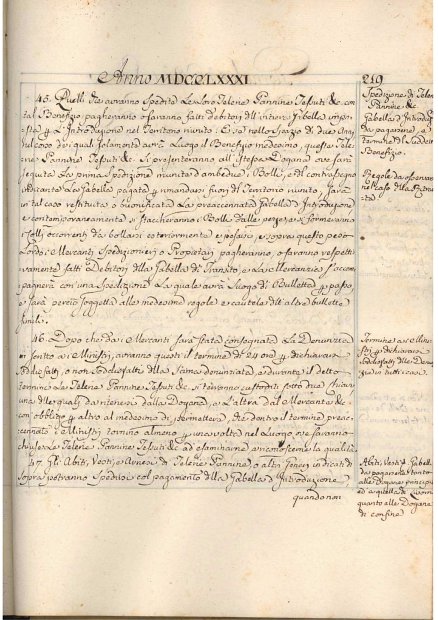 Anno MDCCLXXXI.
219
45. Quelli che avranno Spedite Le Loro Telerie Pannine Tessuti &c. con
tal Benefizio pagheranno o saranno fatti debitori dell'intiera Gabella
Introduzione nel Territorio riunito: E se nello Spazio di due Anni
nel caso dei quali solamente avrà Luogo il Benefizio medesimo, queste Tele
rie Pannine Tessuti &c. Si presenteranno all'Istessa Dogana ove sarà
seguita La prima Spedizione munite d'ambedue i Bolli, e del contrasegno
indicante La Gabella pagata, e rimandati fuori del Territorio riunito, sarà
in tal caso restituita o buonificata La preaccennata Gabella d'Introduzione
e contemporaneamente si staccheranno i Bolli dalle pezze e si formeranno
i colli occorrenti da collarsi esteriormente e pesarsi, e sopra questo peso
Lordo i Mercanti Spedizionieri o Proprietari pagheranno o saranno respetti
vamente fatti Debitori della Gabella di Transito e La Mercanzia s'accom
pagnerà con una Spedizione La quale avrà Luogo di Bulletta di passo,
e sarà perciò soggetta alle medesime regole e cautele dell'altre bullette
simili.
46. Dopo che da i Mercanti sarà stata consegnata La Denunzia
in scritto a i Ministri, avranno questi il termine di 24 ore per dichiarare
sodisfatti, o non sodisfatti della stima denunziata, e durante il detto
termine Le Telerie Pannine Tessuti &c. si terranno custodite sotto due chiavi,
una delle quali da ritenersi dalla Dogana, e L'altra dal Mercante &c.
con obbligo per altro al medesimo di permettere che dentro il termine preac
cennato i Ministri tornino almeno per una volta nel Luogo ove saranno
chiuse Le Telerie Pannine Tessuti &c. ad esaminarne e riconoscerne la qualità.
47. Gli Abiti, Vesti, e Arnesi di Telerie Pannine, o altri generi indicati di
sopra potranno Spedirsi col pagamento della Gabella d'Introduzione,
quando non
Spedizione di Tele
Pannine &c.
Gabella d'Introduz.
da pagarsene, e
termine del suddetto
Benefizio.
Regole da osservarsi
nel caso della
Termine a i Mini
stri per dichiararsi
sodisfatti delle Denun
zie in tutti i casi.
Abiti, Vesti &c. Gabella
da pagarsene tanto
alle Dogane principali
ed a quella di Livorno
quanto alle Dogane
di confine